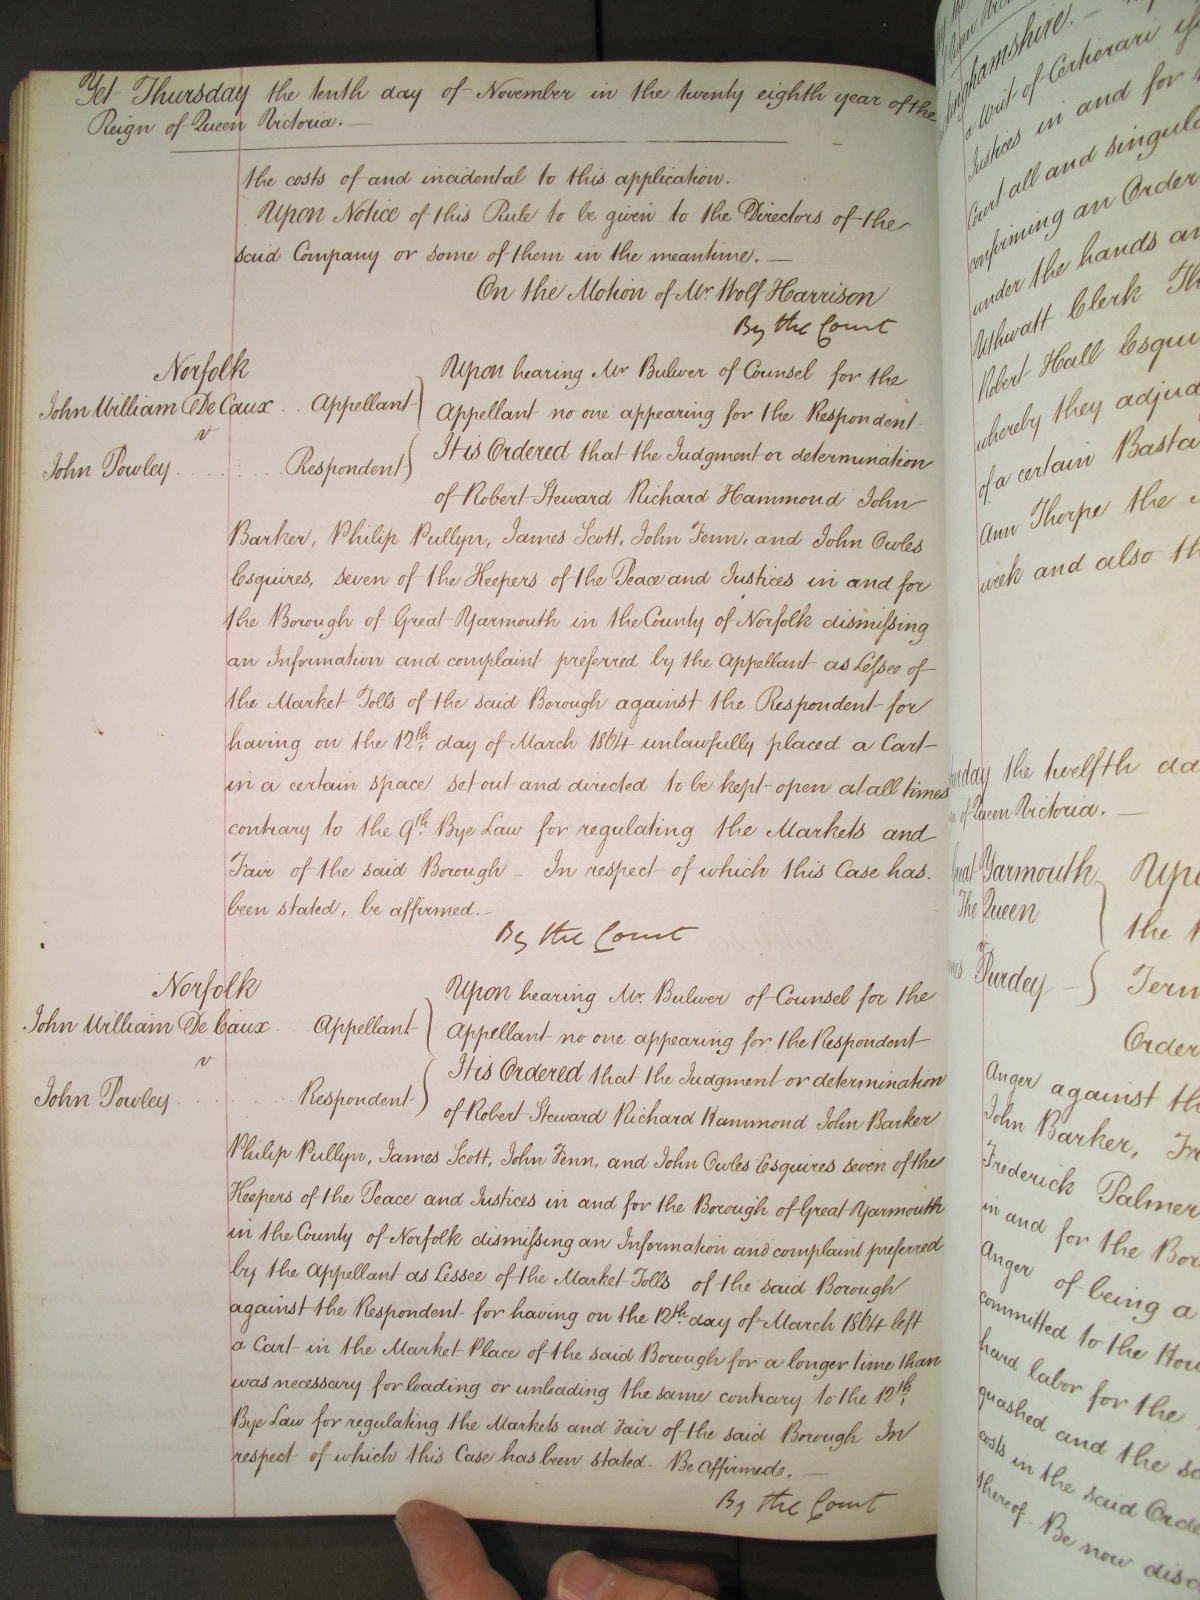 Yet Thursday the tenth day of November in the twenty eighth year of the
Reign of Queen Victoria. —
the costs of and incidental to this application.
Upon Notice of this Rule to be given to the Directors of the
said Company or some of them in the meantime. —
On the Motion of Mr Wolf Harrison
By the Court
Norfolk
John William De Caux . . Appellant
v
John Powley . . . . . Respondent
Upon hearing Mr Bulwer of Counsel for the
Appellant no one appearing for the Respondent
It is Ordered that the Judgment or determination
of Robert Steward Richard Hammond John
Barker, Philip Pullyn, James Scott, John Fenn, and John Owles
Esquires, seven of the Keepers of the Peace and Justices in and for
the Borough of Great Yarmouth in the County of Norfolk dismissing
an Information and complaint preferred by the Appellant as Lessee of
the Market Tolls of the said Borough against the Respondent for
having on the 12th day of March 1864 unlawfully placed a Cart
in a certain space set out and directed to be kept open at all times
contrary to the 9th Bye Law for regulating the Markets and
Fair of the said Borough – In respect of which this Case has.
been stated, be affirmed. –
By the Court
Norfolk
John William De Caux . Appellant
v
John Powley . . . . Respondent
Upon hearing Mr. Bulwer of Counsel for the
Appellant no one appearing for the Respondent
It is Ordered that the Judgment or determination
of Robert Steward Richard Hammond John Barker
Philip Pullyn, James Scott, John Fenn, and John Owles Esquires seven of the
Keepers of the Peace and Justices in and for the Borough of Great Yarmouth
in the County of Norfolk dismissing an Information and complaint preferred
by the Appellant as Lessee of the Market Tolls of the said Borough
against the Respondent for having on the 12th day of March 1864 left
a Cart in the Market Place of the said Borough for a longer time than
was necessary for loading or unloading the same contrary to the 12th
Bye Law for regulating the Markets and Fair of the said Borough In
respect of which this Case has been stated – Be affirmed. —
By the Court
a writ of Certiorari
Justices in and for
Court all and singul
confirming an Order
under the hands an
Uthwatt Clerk Th
Robert Hall Esqui
whereby they adjud
of a certain Basta
Ann Thorpe the
week and also th
the twelfth da
of Queen Victoria. —
Yarmouth
The Queen
v
Purdey
Upo
the
Term
Order
Anger against th
John Barker, Fr
Frederick Palmer
in and for the Bor
Anger of being a
committed to the Hou
hard labor for the
quashed and the sa
costs in the said Orde
thereof. Be now disc